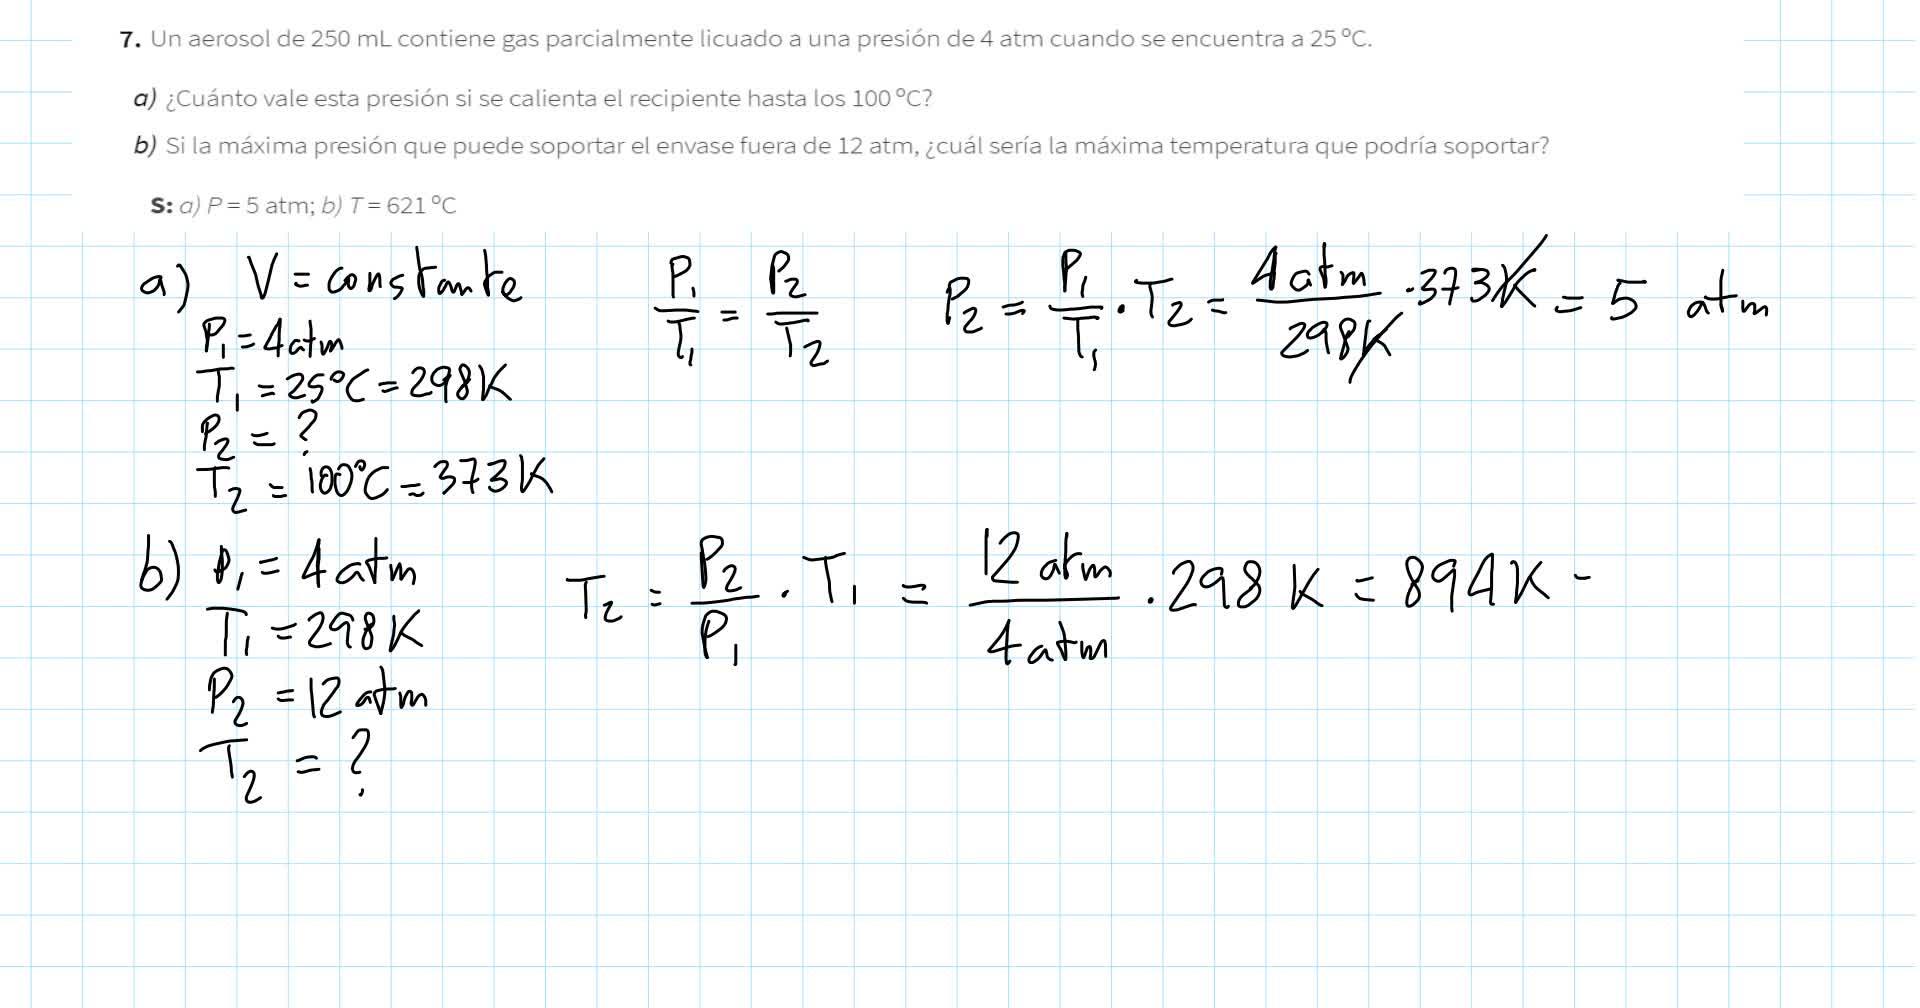 7. Un aerosol de 250 mL contiene gas parcialmente licuado a una presión de 4 atm cuando se encuentra a 25 ºC.
a) ¿Cuánto vale esta presión si se calienta el recipiente hasta los 100 ºC?
b) Si la máxima presión que puede soportar el envase fuera de 12 atm, ¿cuál sería la máxima temperatura que podría soportar?
S: a) P = 5 atm; b) T = 621 ºC
a) V = constante
P₁ = 4 atm
T₁ = 25°C = 298 K
P₂ = ?
T₂ = 100°C = 373 K
P₁/T₁ = P₂/T₂
P₂ = P₁/T₁ · T₂ = 4 atm/298 K · 373 K = 5 atm
b) P₁ = 4 atm
T₁ = 298 K
P₂ = 12 atm
T₂ = ?
T₂ = P₂/P₁ · T₁ = 12 atm/4 atm · 298 K = 894 K -